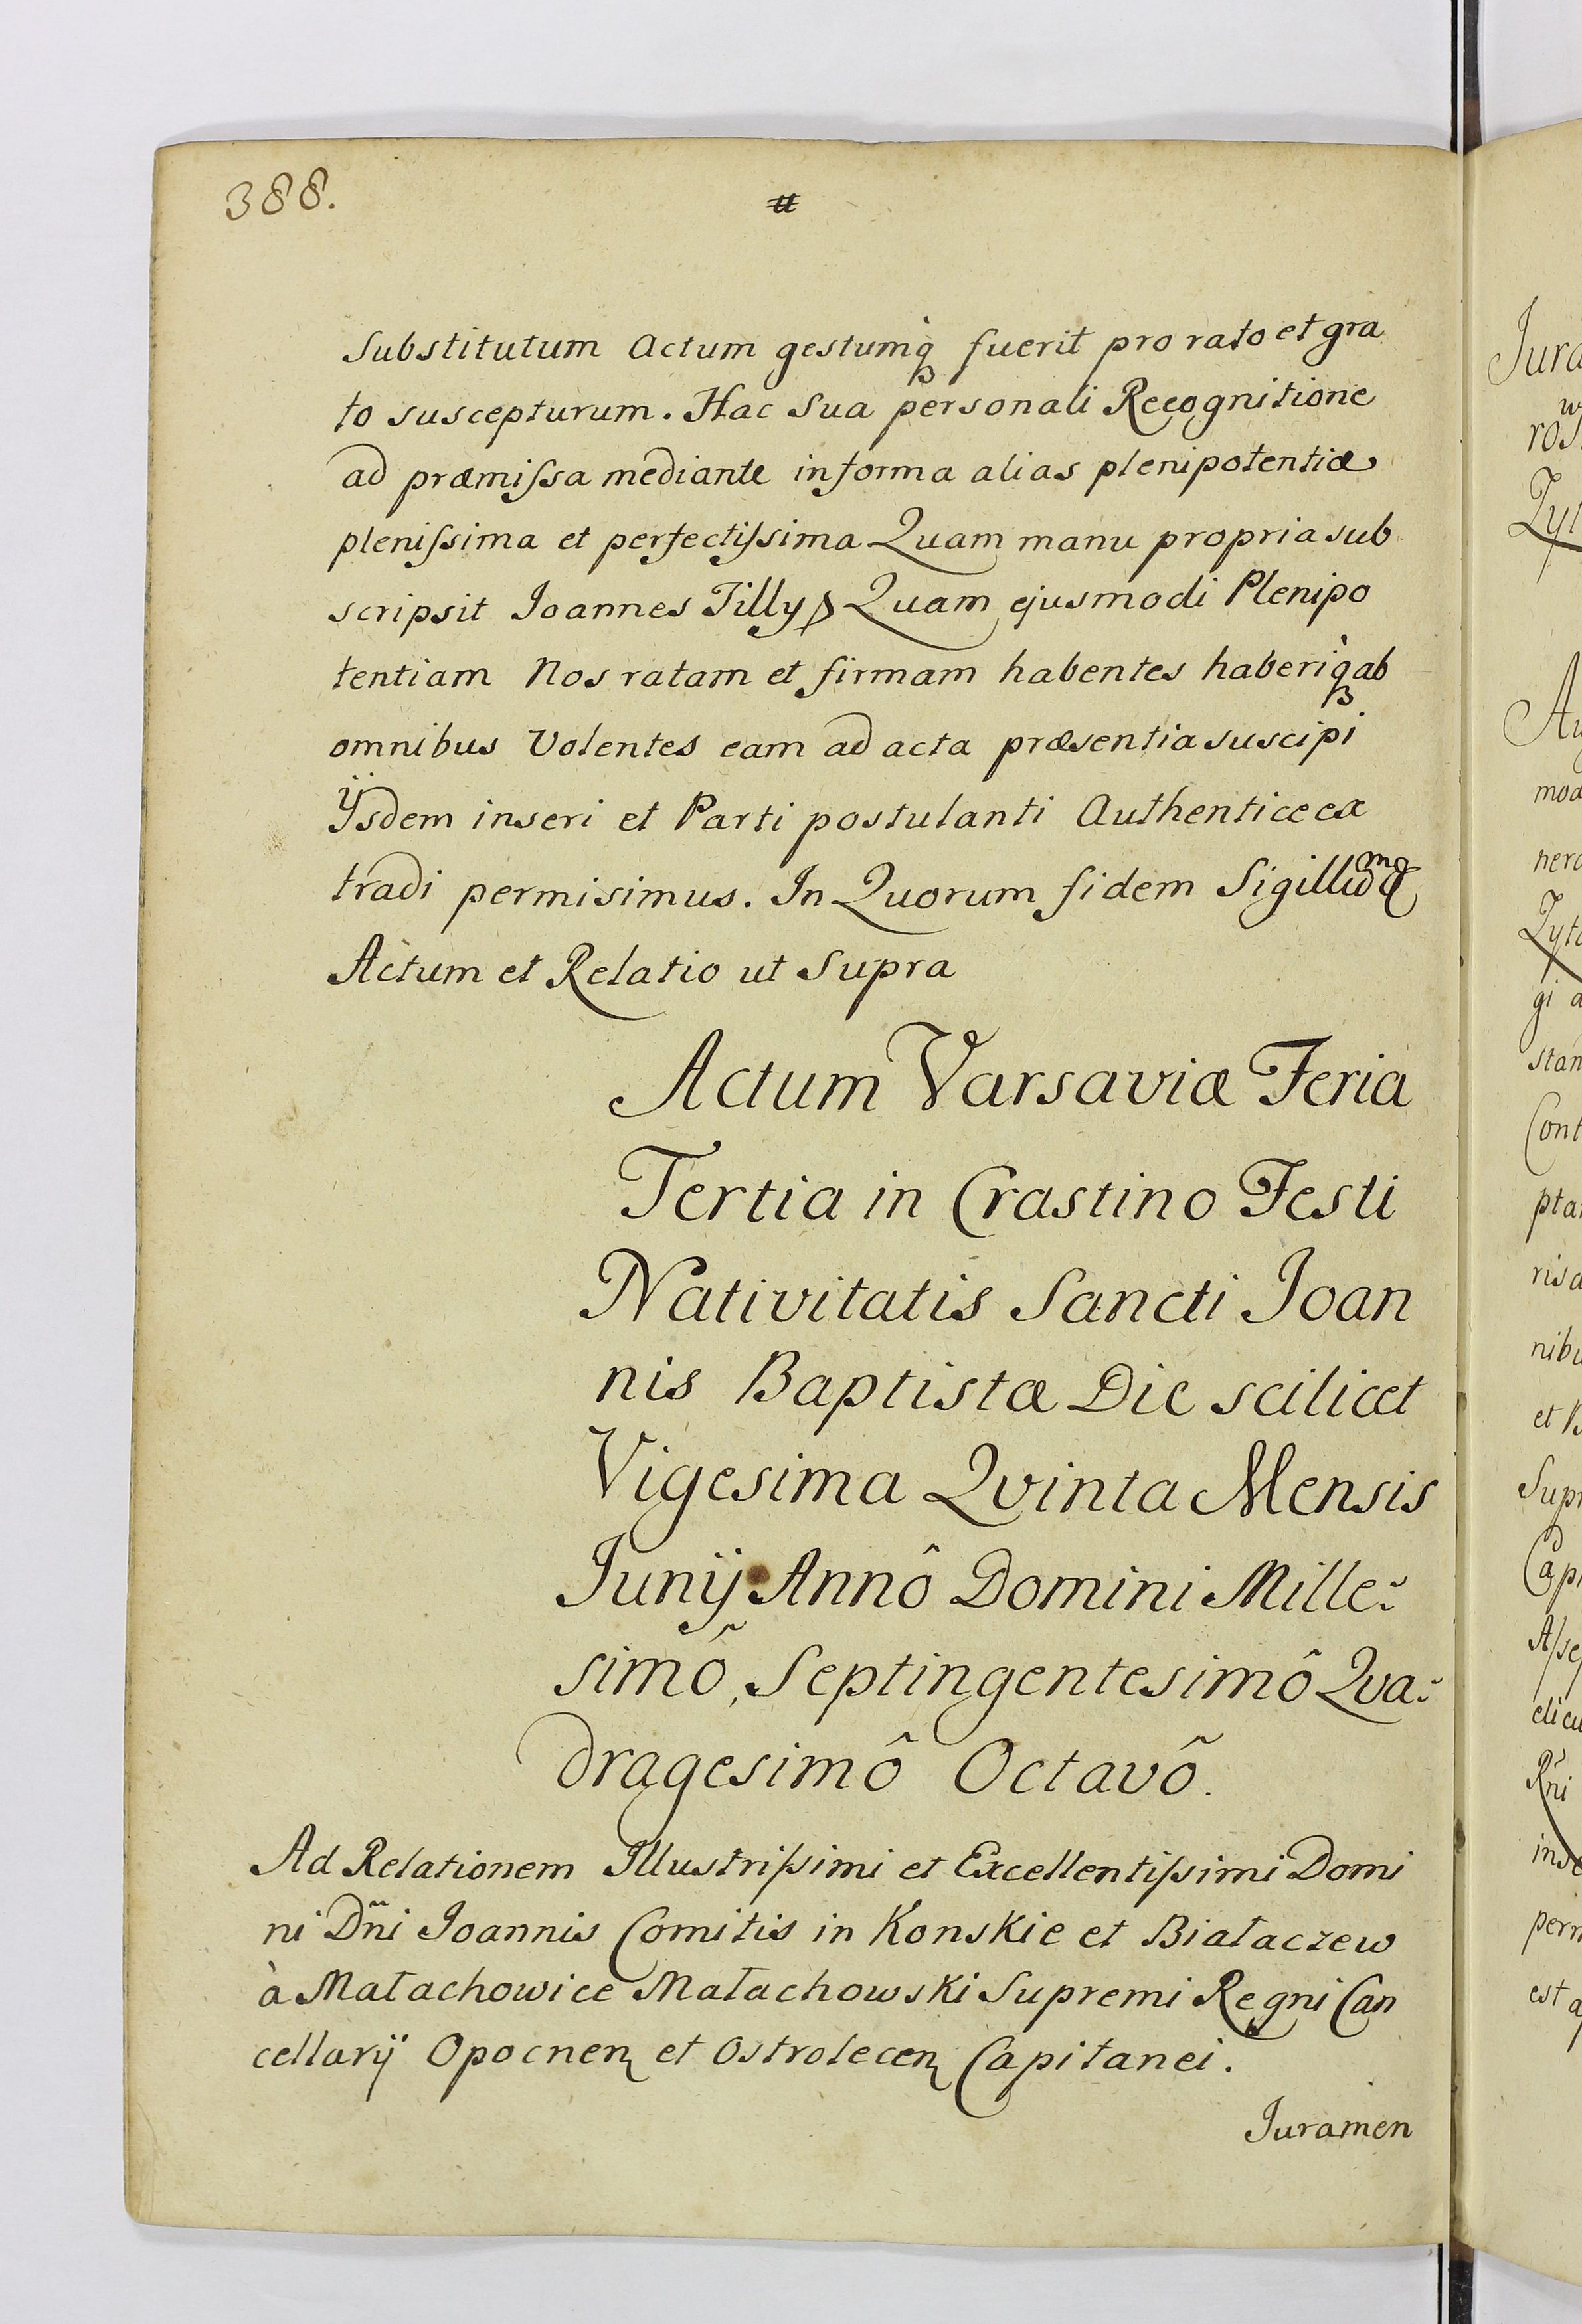 388.
substitutum Actum gestumq́ꝫ fuerit pro rato et gra
to suscepturum. Hac Sua personali Recognitione
ad præmiſsa mediante in forma alias plenipotentiæ
pleniſsima et perfectiſsima Quam manu propria sub
scripsit Joannes Tilly Quam ejusmodi Plenipo
tentiam Nos ratam et firmam habentes haberiq́ꝫ ab
omnibus Volentes eam ad acta præsentia suscipi
Ÿsdem inseri et Parti postulanti Authentice ex
tradi permisimus. In Quorum fidem Sigillu
Actum et Relatio ut Supra
Actum Varsaviæ Feria
Tertia in Crastino Festi
Nativitatis Sancti Joan
nis Baptistæ Die scilicet
Vigesima Qvinta Mensis
Junÿ Annô Domini Mille
simô, Septingentesimô Qva
dragesimô Octavô.
Ad Relationem Illustriſsimi et Excellentiſsimi Domi
ni Dn̄i Joannis Comitis in Konskie et Białaczew
à Małachowice Małachowski Supremi Regni Can
cellarÿ Opocnen et Ostrolecen Capitanei.
Juramen